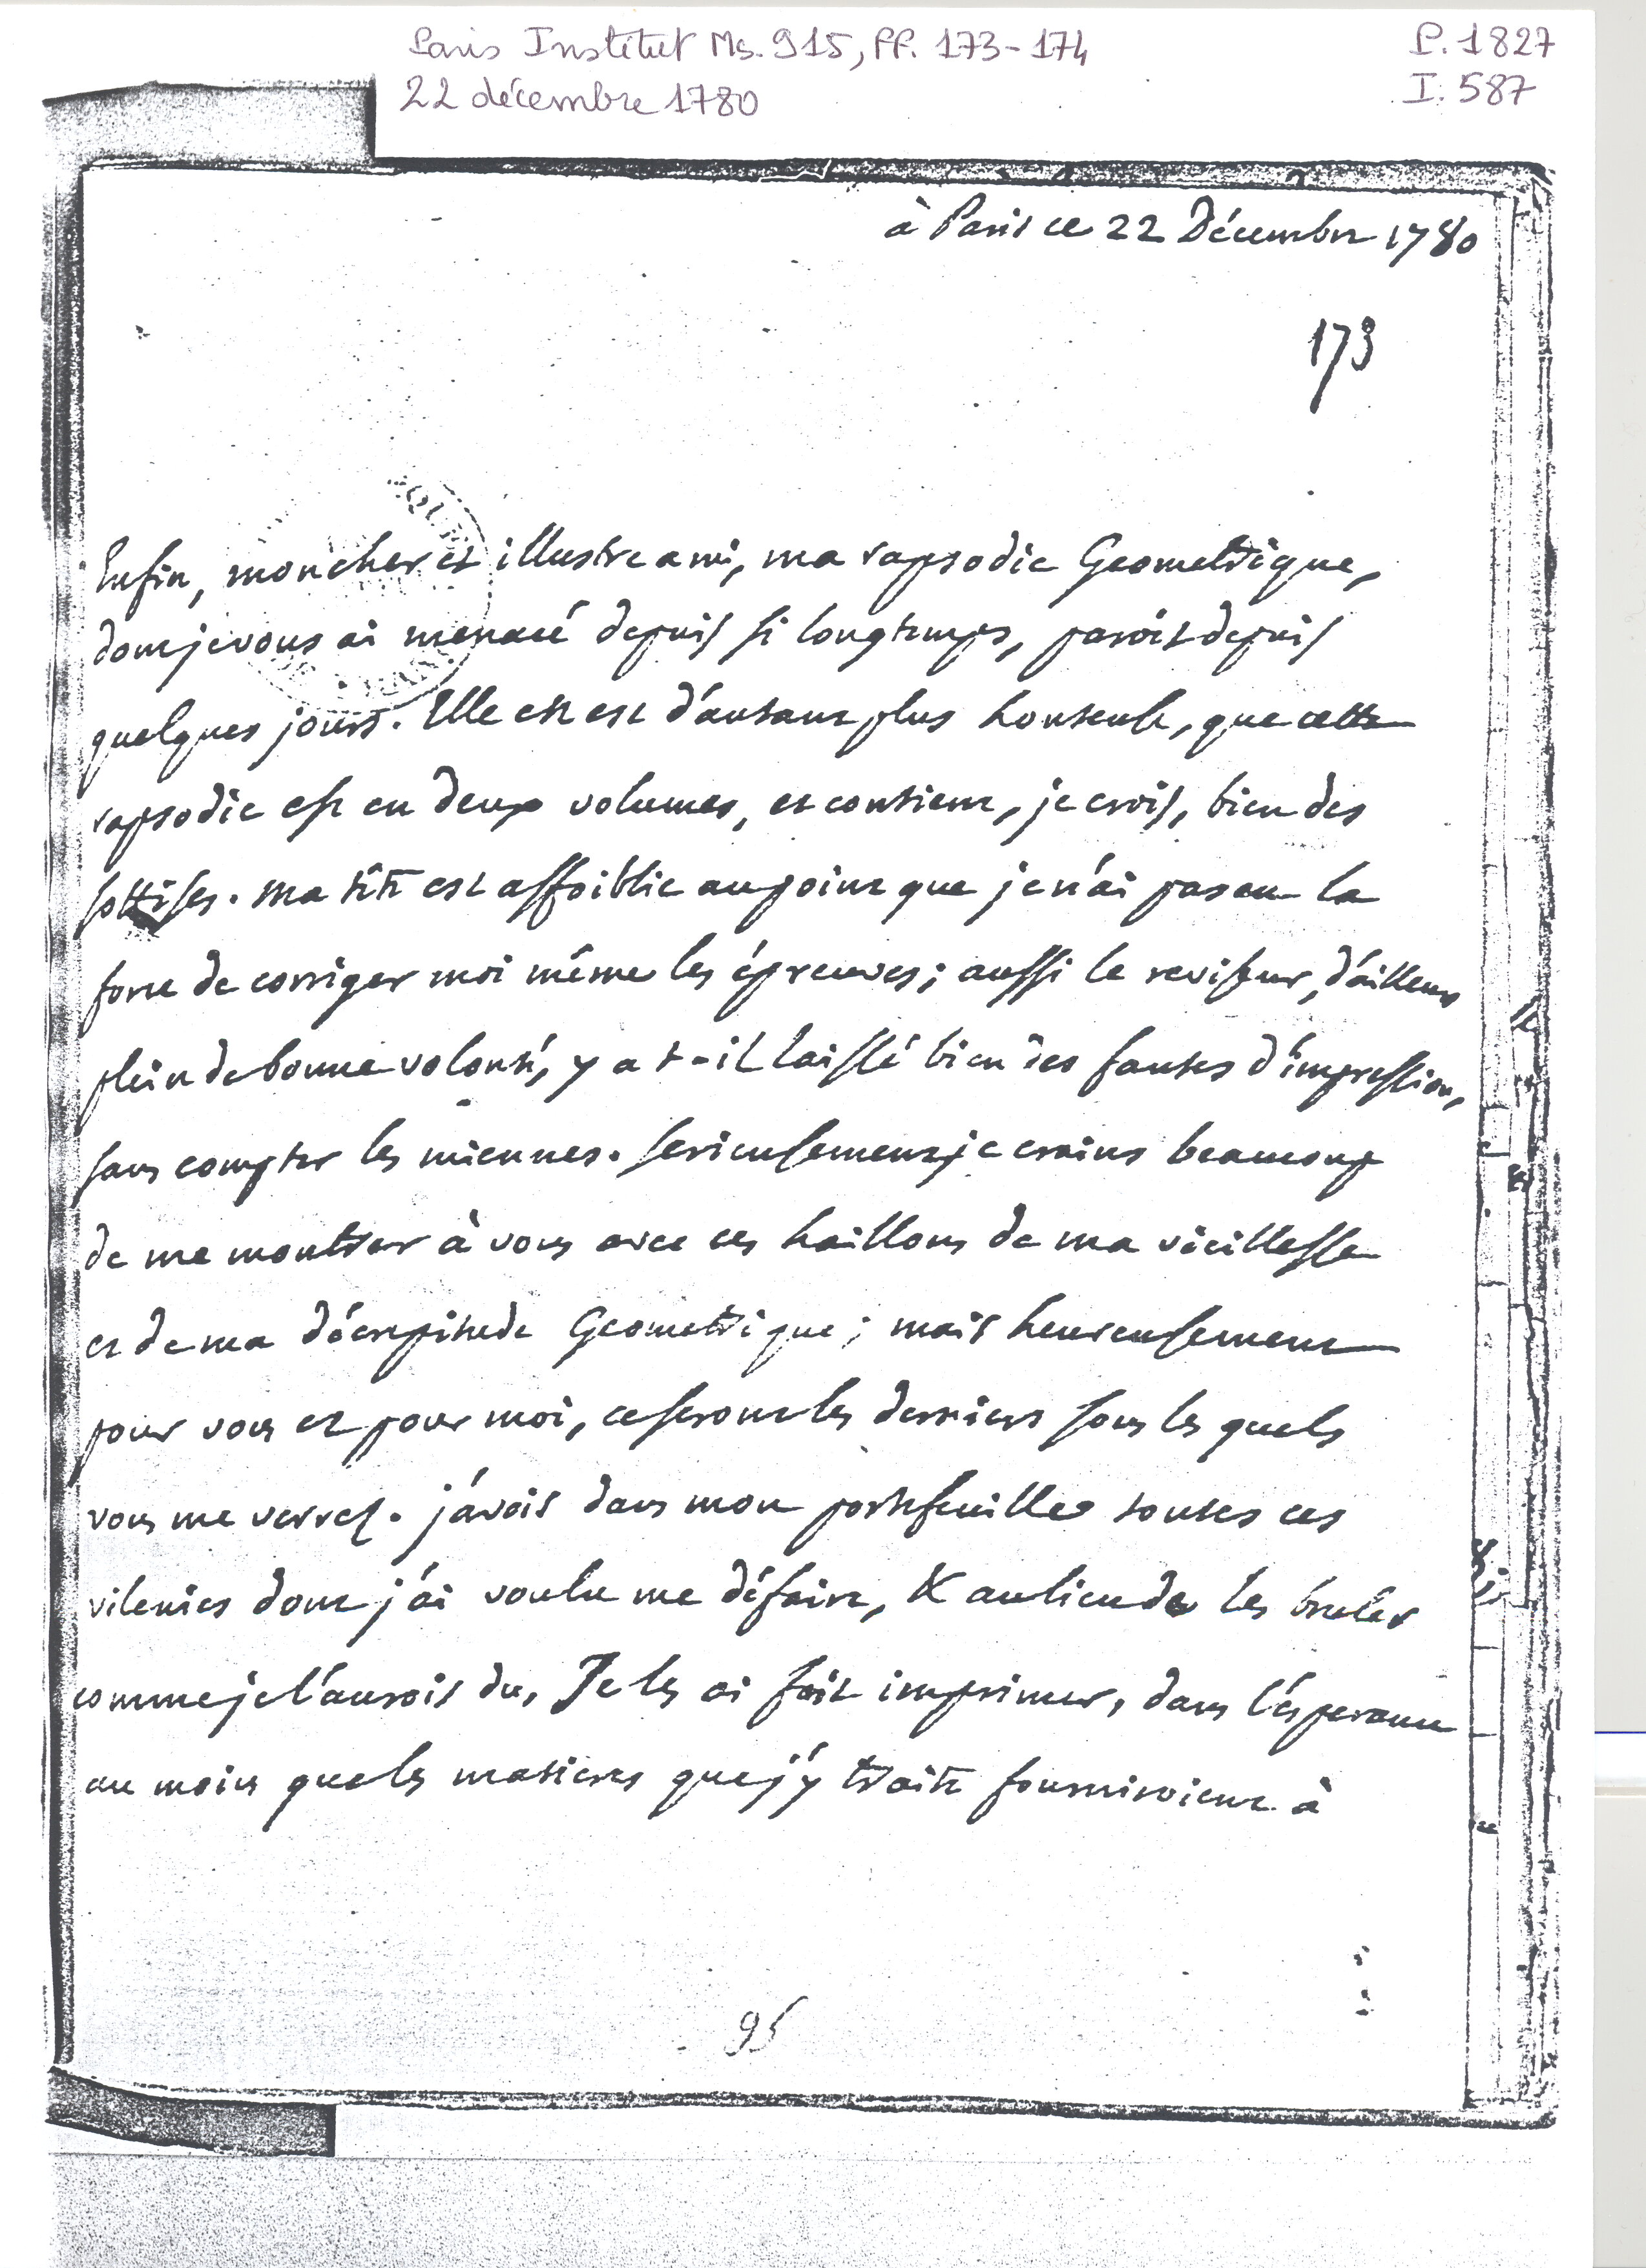 Paris Institut Ms. 915, PP. 173-174
P. 1827
22 décembre 1780
I. 587
à Paris ce 22 Décembre 1780
173
Enfin, mon cher et illustre ami, ma rapsodie Geometrique,
dont je vous ai menacé depuis si longtemps, paroit depuis
quelques jours. Elle en est d'autant plus honteuse, que cette
rapsodie est en deux volumes, et contient, je crois, bien des
sottises. ma tête est affoiblie au point que je n'ai pas eu la
force de corriger moi même les épreuves; aussi le reviseur, d'ailleurs
plein de bonne volonté, y a t-il laissé bien des fautes d'impression,
sans compter les miennes. serieusement je crains beaucoup
de me montrer à vous avec ces haillons de ma vieillesse
et de ma décrepitude Geometrique; mais heureusement
pour vous et pour moi, ce seront les derniers sous les quels
vous me verrez. j'avois dans mon portefeuille toutes ces
vilenies dont j'ai voulu me défaire, & au lieu de les bruler
comme je l'aurois du, Je les ai fait imprimer, dans l'esperance
au moins que les matieres que j'y traite fourniroient à
95